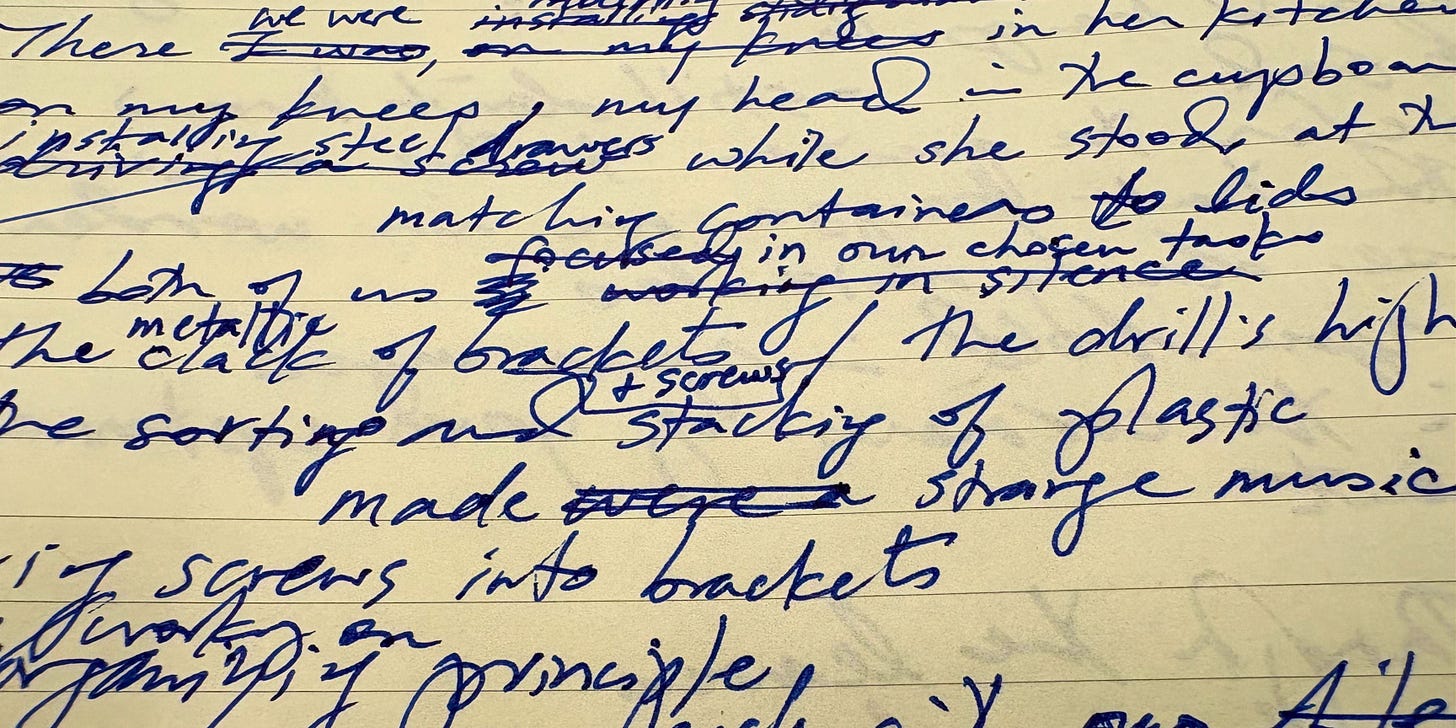 we were installing
There I was, on my knees in her kitchen
on my knees, my head in the cupboar
installing steel drawers
driving a screw while she stood at th
matching containers to lids
focused in our chosen tasks
both of us working in silence
metallic
the clack of brackets / the drill's high
+ screws
the sorting and stacking of plastic
made were a strange music
ing screws into brackets
working on
organizing principle